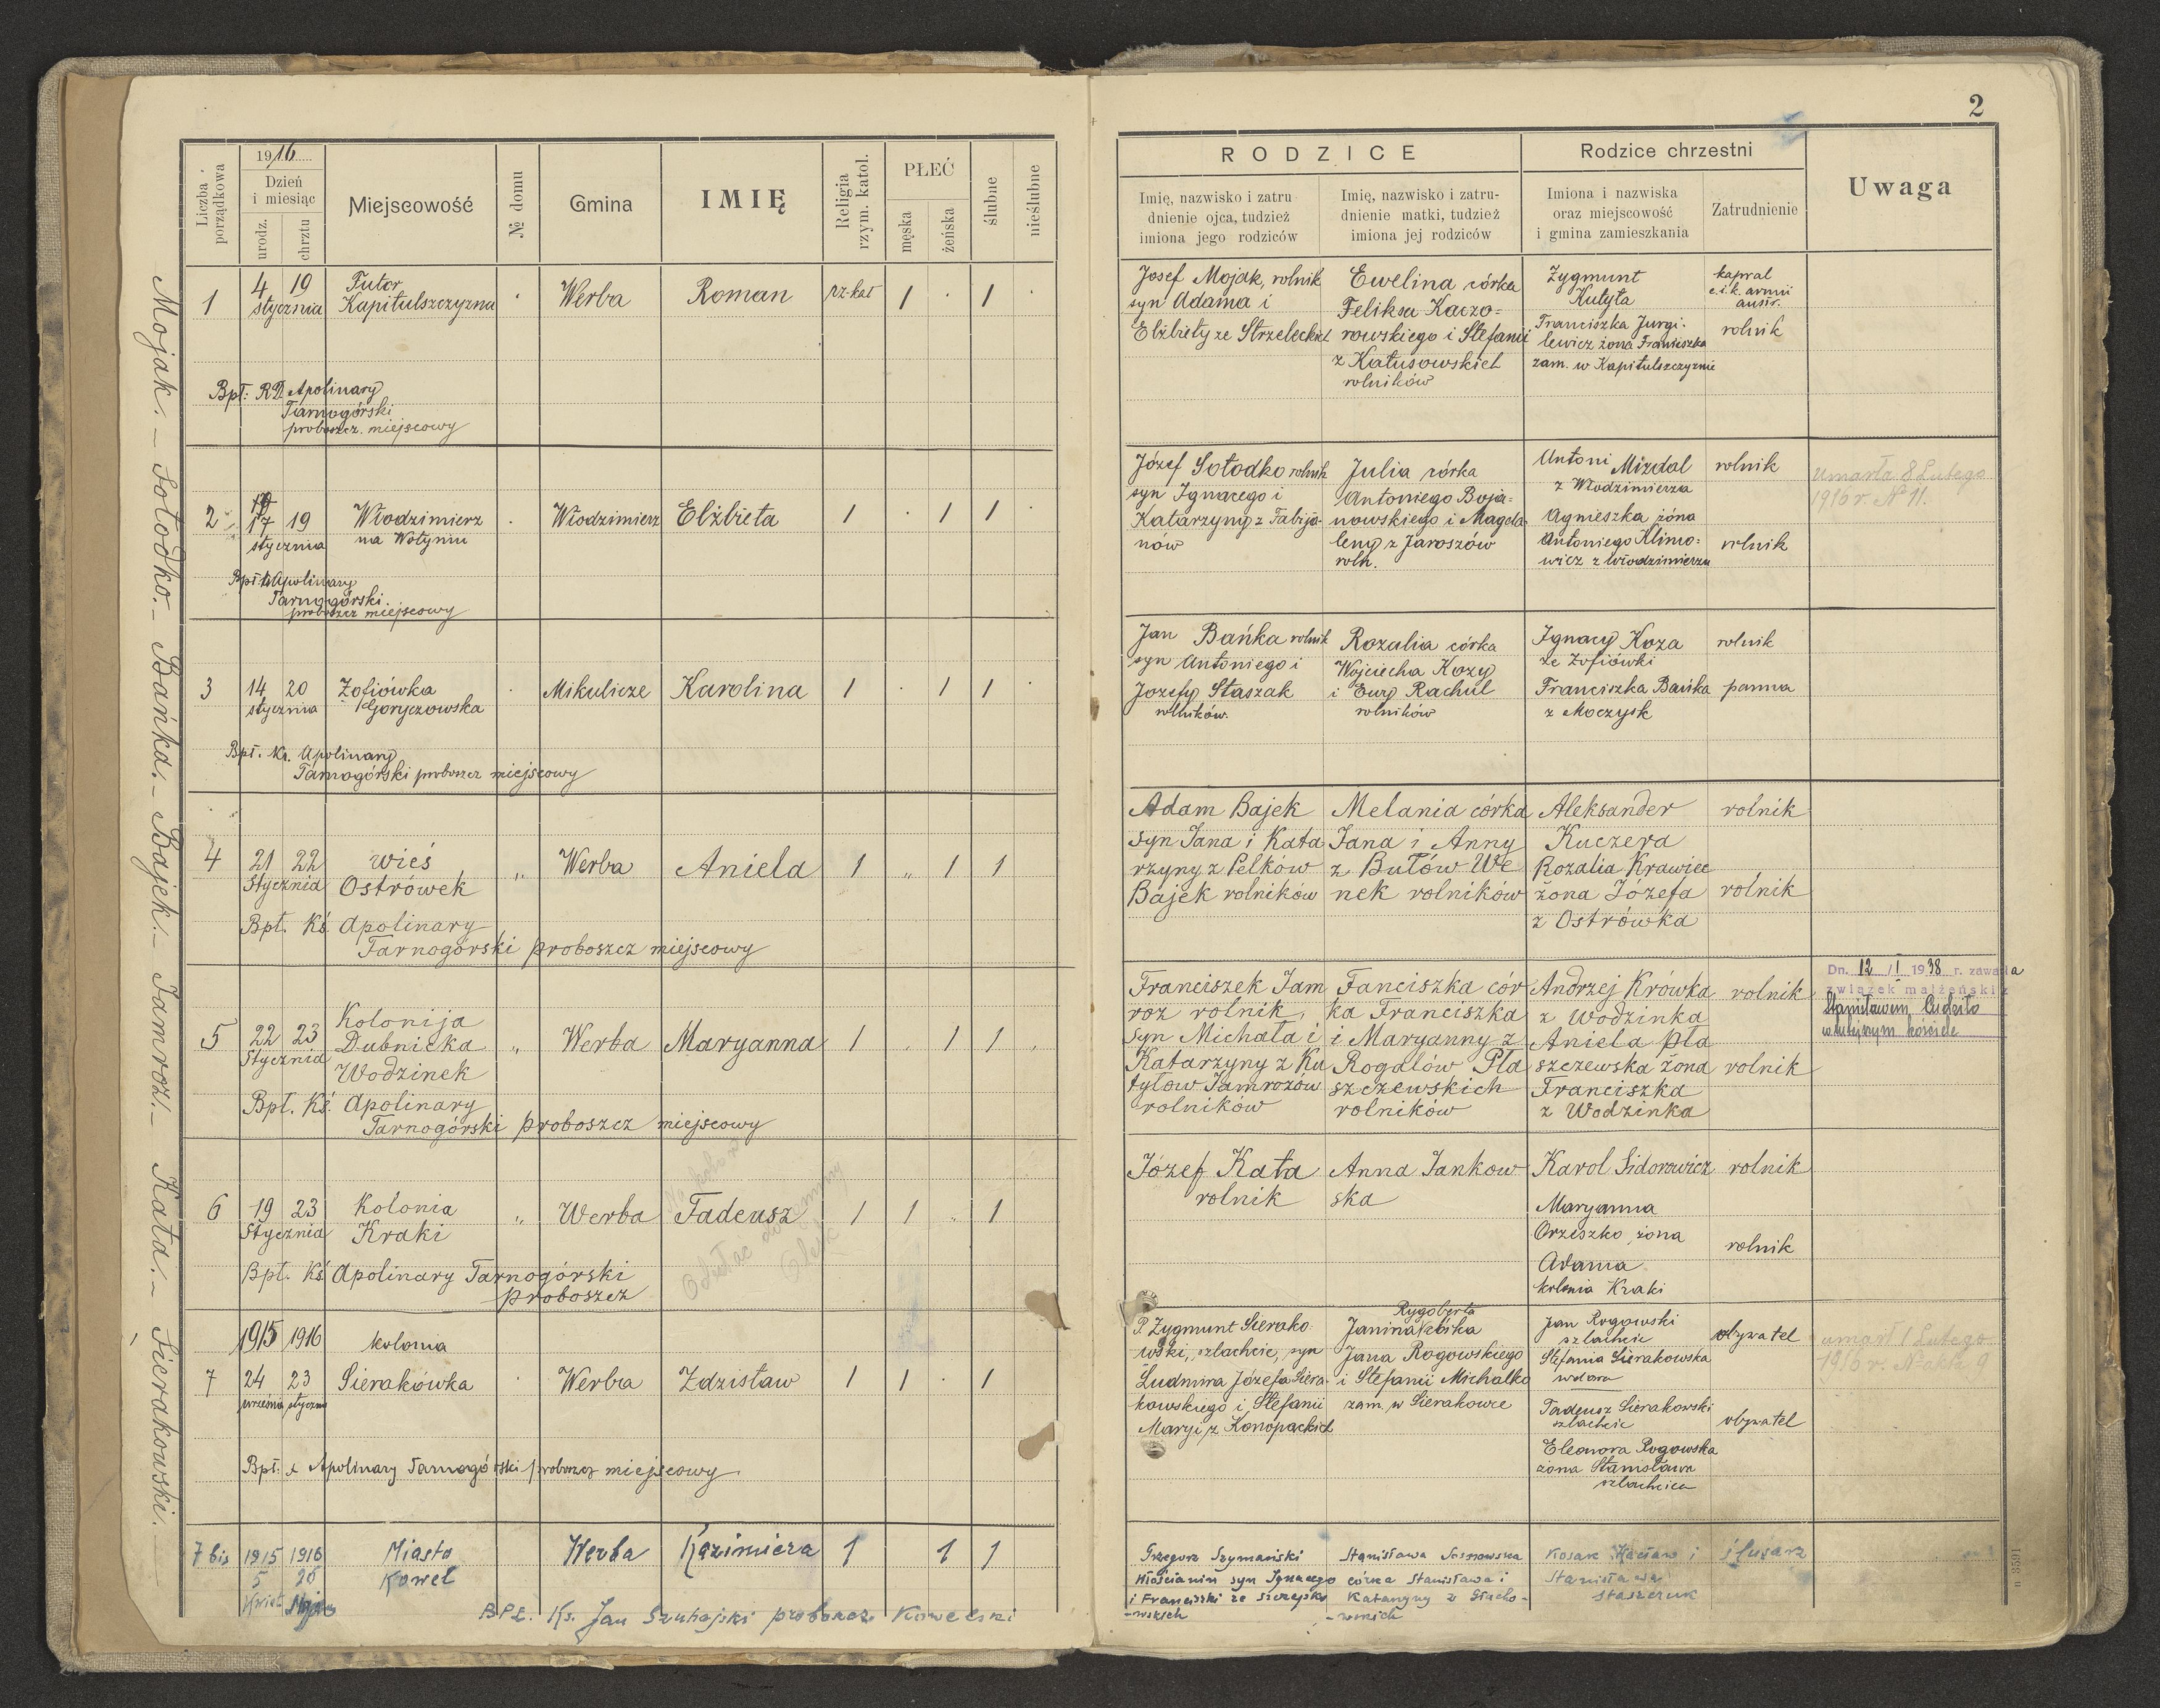 2
1916
Liczba porządkowa
Dzień
i miesiąc
urodz.
chrztu
Miejscowość
№ domu
Gmina
IMIĘ
Religia
rzym. katol.
PŁEĆ
męska
żeńska
ślubne
nieślubne
RODZICE
Imię, nazwisko i zatru
dnienie ojca, tudzież
imiona jego rodziców
Imię, nazwisko i zatru-
dnienie matki, tudzież
imiona jej rodziców
Rodzice chrzestni
Imiona i nazwiska
oraz miejscowość
i gmina zamieszkania
Zatrudnienie
Uwaga
Mojak. – Sołodko. – Bańka. – Bajek. – Jamroz. – Kata. – Sierakowski. –
1
4 19
stycznia
Futor
Kapitulszczyzna
Werba
Roman
rz-kat
1 . 1 .
Bpt: RD. Apolinary
Tarnogórski
proboszcz. miejscowy
Josef Mojak, rolnik
syn Adama i
Elżbiety ze Strzeleckich
Ewelina córka
Feliksa Kaczo=
rowskiego i Stefanii
z Katusowskich
rolników
Zygmunt
Kutyła
Franciszka Jurgi-
lewicz żona Franciszka
zam. w Kapitulszczyznie
kapral
c. i k. armii
austr.
rolnik
2
17 19
stycznia
Włodzimierz
na Wołyniu
Włodzimierz
Elżbieta
1 . 1 1
Apolinary
Tarnogórski.
proboszcz miejscowy
Józef Sołodko rolnik
syn Ignacego i
Katarzyny z Fabija-
nów
Julia córka
Antoniego Boja=
nowskiego i Magda-
leny z Jaroszów
roln.
Antoni Mizdal
z Włodzimierza
Agnieszka żona
Antoniego Klimo=
wicz z Włodzimierza
rolnik
rolnik
umarła 8 Lutego
1916 r. № 11.
3
14 20
stycznia
Zofiówka
Goryczowska
Mikulicze
Karolina
1 . 1 1
Bpt. Ks. Apolinary
Tarnogórski proboszcz miejscowy
Jan Bańka rolnik
syn Antoniego i
Jozefy Staszak
rolników.
Rozalia córka
Wojciecha Kozy
i Ewy Rachul
rolników
Ignacy Koza
ze Zofiówki
Franciszka Bańka
z Moczysk
rolnik
panna
4
21 22
Stycznia
wieś
Ostrówek
„
Werba
Aniela
1 „ 1 1
Bpt. Ks. Apolinary
Tarnogórski proboszcz miejscowy
Adam Bajek
syn Jana i Kata
rzyny z Pelków
Bajek rolników
Melania córka
Jana i Anny
z Butów We
nek rolników
Aleksander
Kuczera
Rozalia Krawiec
żona Józefa
z Ostrówka
rolnik
rolnik
5
22 23
Stycznia
Kolonija
Dubnicka
Wodzinek
„
Werba
Maryanna
1 . 1 1 .
Bpt. Ks. Apolinary
Tarnogórski proboszcz miejscowy
Franciszek Jam
roz rolnik,
syn Michała i
Katarzyny z Ku
tyłow Jamrozów
rolników
Fanciszka cór
ka Franciszka
i Maryanny z
Rogalów Pła
szczewskich
rolników
Andrzej Krówka
z Wodzinka
Aniela Pła
szczewska żona
Franciszka
z Wodzinka
rolnik
rolnik
Dn. 12/I 1938 r. zawarła
związek małżeński z
Stanisławem
w tutejszym kościele
6
19 23
Stycznia
Kolonia
Kraki
„
Werba
Tadeusz
1 1 „ 1
Bpt. Ks. Apolinary Tarnogórski
proboszcz
Józef Kata
rolnik
Anna Jankow
ska
Karol Sidorowicz
Maryanna
Orzeszko żona
Adama
kolonia Kraki
rolnik
rolnik
7
1915 1916
24 23
września stycznia
kolonia
Sierakówka
Werba
Zdzisław
1 1 . 1
Bpt. x Apolinary Tarnogórski proboszcz miejscowy
P. Zygmunt Sierako-
wski, szlachcic, syn
Ludmira Józefa Siera-
kowskiego i Stefanii
Maryi z Konopackich
Rygoberta
Janina córka
Jana Rogowskiego
i Stefanii Michałko
zam. w Sierakowce
Jan Rogowski
szlachcic
Stefania Sierakowska
wdowa
Tadeusz Sierakowski
szlachcic
Eleonora Rogowska
żona Stanisława
szlachcica
obywatel
obywatel
umarł 1 Lutego
1916 r. № aktu 9
7 bis
1915 1916
5 26
Kwiet
Miasto
Kowel
Werba
Kazimiera
1 1 1
BPŁ. Ks. Jan Szuhajski proboszcz Kowelski
Grzegorz Szymański
Włościanin syn Ignacego
i Franciszki ze Szczepko
-wskich
Stanisława Sosnowska
córka Stanisława i
Katarzyny z Głucho-
-wskich
Kosak Wacław i
Stanisława
Staszczuk
ślusarz
n 3591